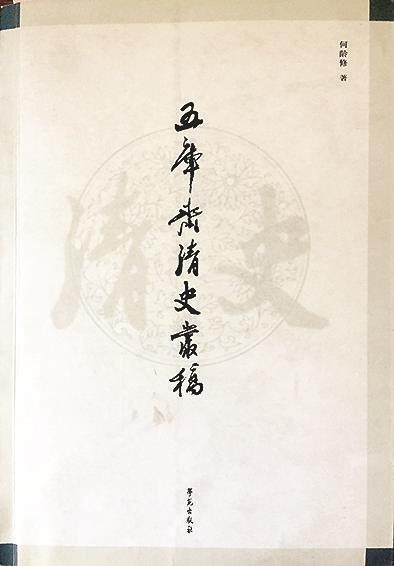 何龄修 著
五库斋清史丛稿
清史
学苑出版社